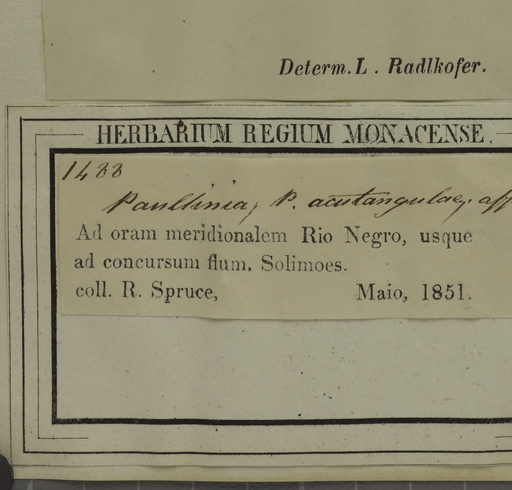 Determ. L. Radlkofer.
HERBARIUM REGIUM MONACENSE.
1488
Paullinia, P. acutangulae, aff
Ad oram meridionalem Rio Negro, usque
ad concursum flum. Solimoes.
coll. R. Spruce, Maio, 1851.